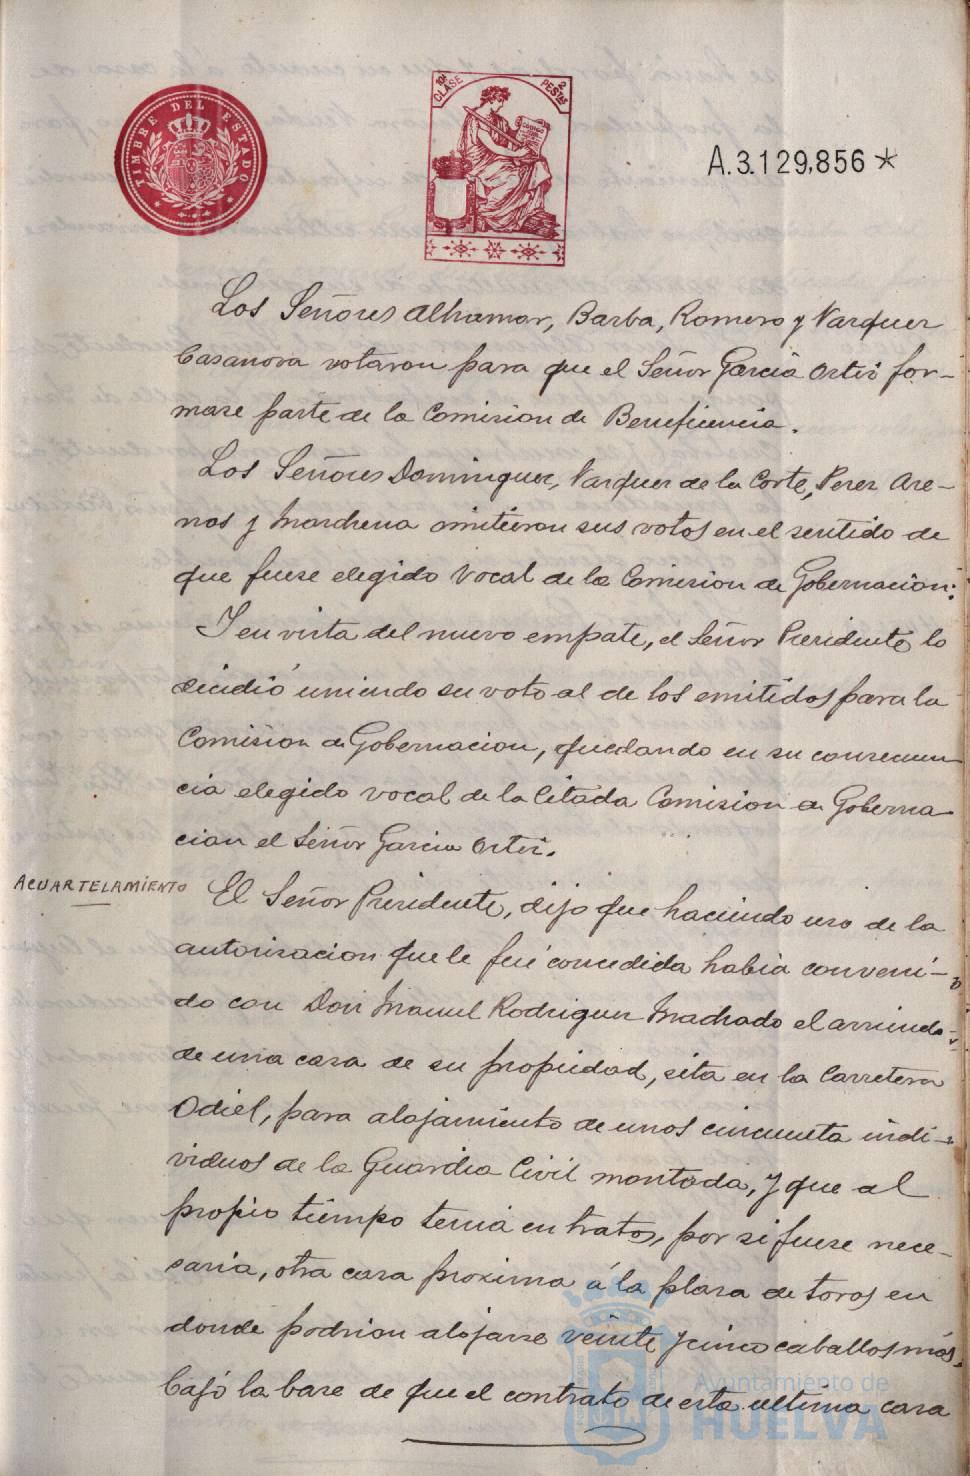 TIMBRE DEL ESTADO
10ª CLASE
2 PESTAS
A.3.129,856 *
Los Señores Alhamar, Barba, Romero y Vazquez
Casanova votaron para que el Señor Garcia Ortiz for-
mase parte de la Comision de Beneficencia.
Los Señores Dominguez, Vazquez de la Corte, Perez Are-
nas y Marchena emitieron sus votos en el sentido de
que fuese elegido Vocal de la Comision de Gobernacion:
Y en vista del nuevo empate, el Señor Presidente lo
decidió uniendo su voto al de los emitidos para la
Comision de Gobernacion, quedando en su consecuen
cia elegido vocal de la Citada Comision de Goberna
cion el Señor Garcia Ortiz.
ACUARTELAMIENTO
El Señor Presidente, dijo que haciendo uso de la
autorizacion que le fué concedida habia conveni-
do con Don Manuel Rodriguez Machado el arriendo
de una casa de su propiedad, sita en la Carretera
Odiel, para alojamiento de unos cincuenta indi-
viduos de la Guardia Civil montada, y que al
propio tiempo tenia en tratos, por si fuese nece-
saria, otra casa proxima á la plaza de toros en
donde podrian alojarse veinte y cinco caballos más,
bajo la base de que el contrato de esta ultima casa
Ayuntamiento de
HUELVA